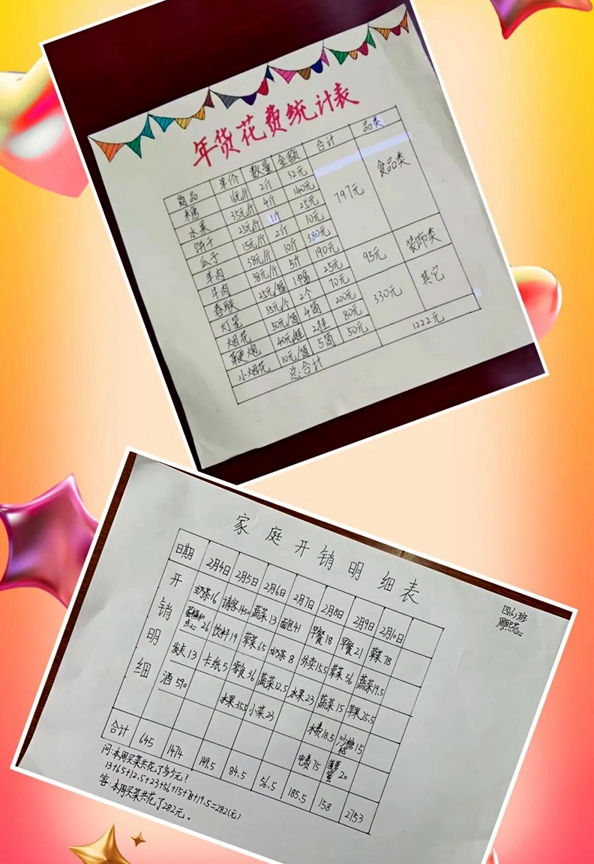 年货花费统计表
商品 单价 数量 金额 合计 品类
糖 16元/斤 2斤 32元
水果 35元/斤 4斤 140元
饼干 25元/斤 1斤 25元 797元 食品类
瓜子 15元/斤 2斤 30元
羊肉 38元/斤 10斤 380元
牛肉 38元/斤 5斤 190元
春联 25元 25元 95元 装饰类
灯笼 35元/个 2个 70元
烟花 50元/筒 4筒 200元 330元 其它
鞭炮 40元/挂 2挂 80元
小烟花 10元/筒 5筒 50元
总合计 1222元
家庭开销明细表
四(6)班
日期 2月4日 2月5日 2月6日 2月7日 2月8日 2月9日 2月10日
开销明细
奶茶16 请客 蔬菜13 面包41 早餐18 早餐21 荤菜78
26 饮料19 荤菜65 奶茶8 外卖15.5 荤菜56 蔬菜19.5
13 卡纸5 零食36 蔬菜12.5 水果23 蔬菜15 苹果25.5
酒590 水果35.5 小菜23 水费18.5 15
电费75 20
合计 645 1474 149.5 84.5 56.5 185.5 158 2753
问:本周买菜共花了多少元?
13+65+12.5+23+56+15+78+19.5=282(元)
答:本周买菜共花了282元。